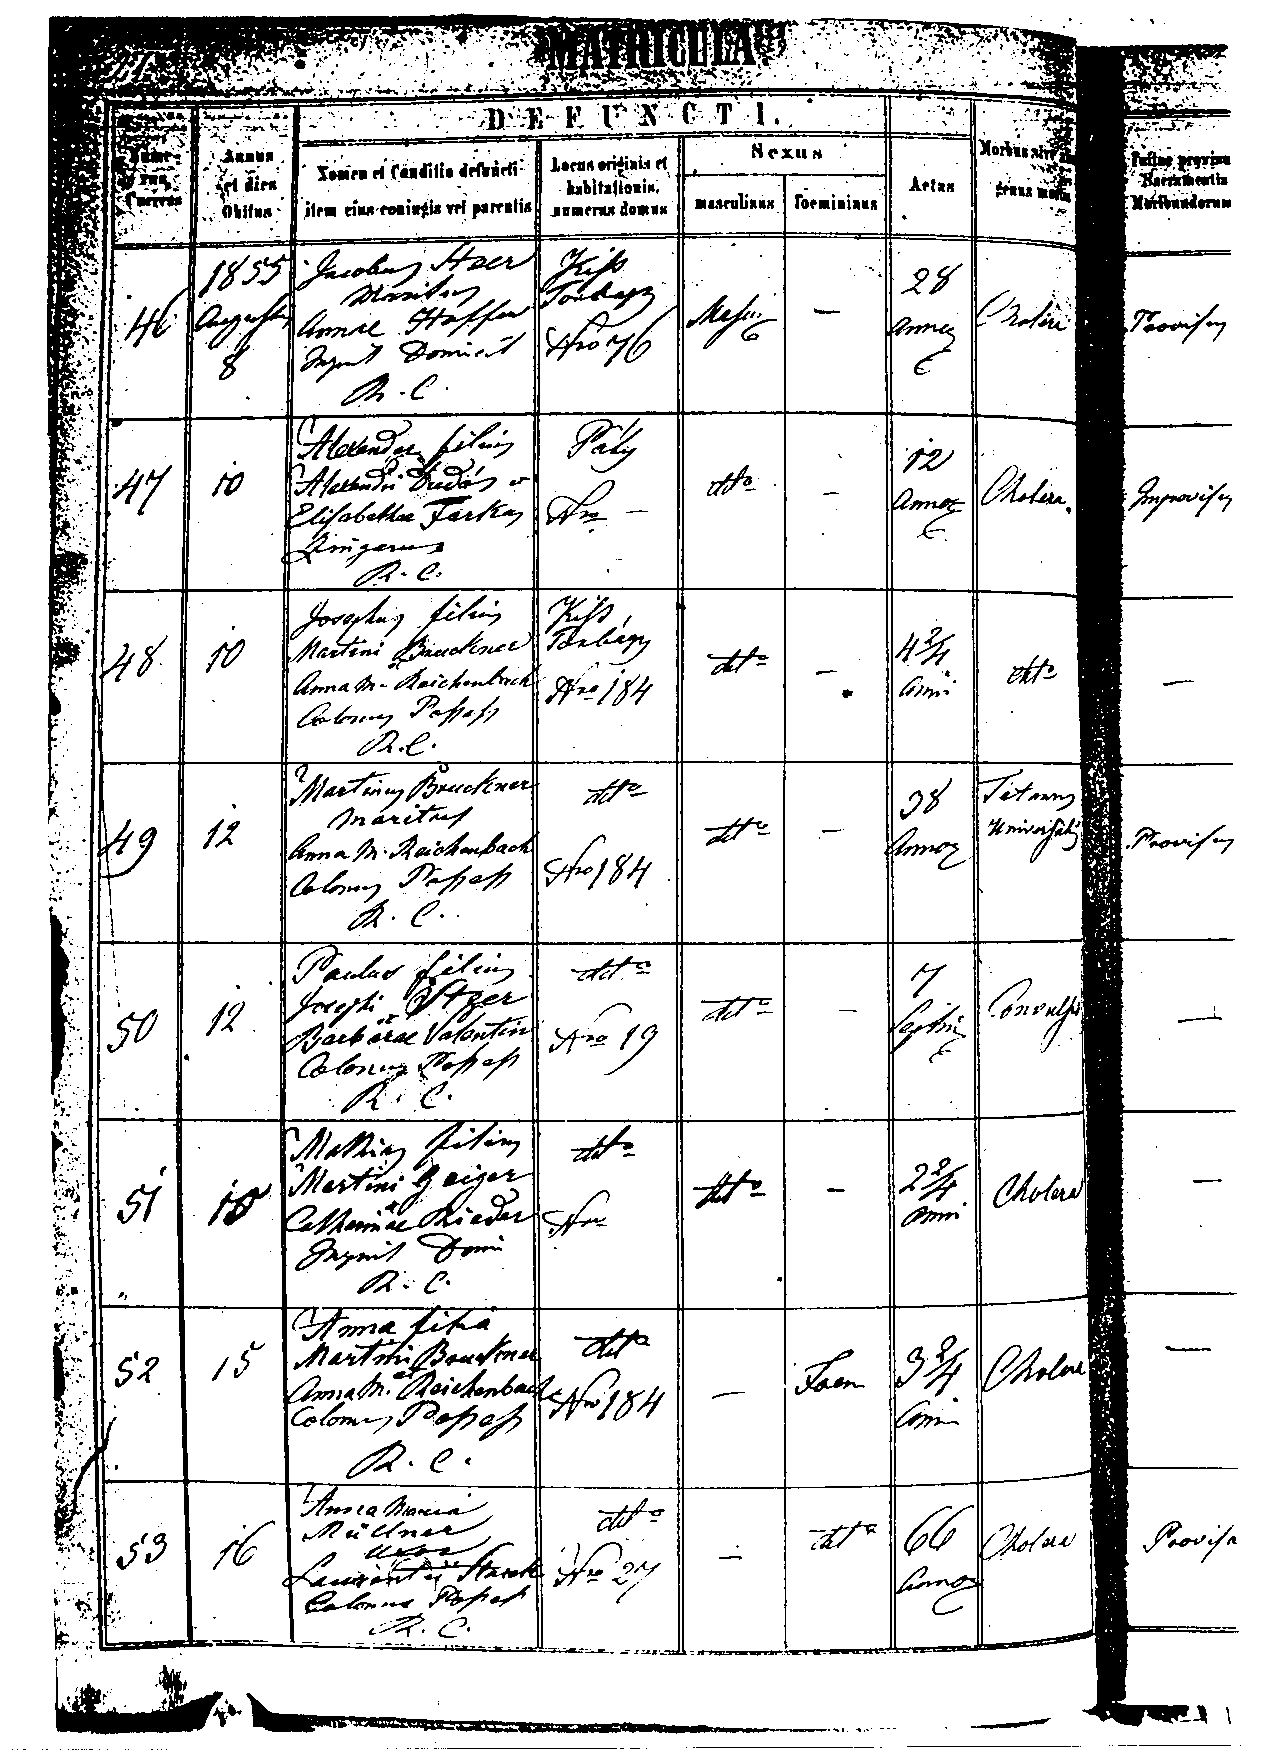 MATRICULA
DEFUNCTI.
Numerus Currens
Annus et dies Obitus
Nomen et Conditio defuncti item eius coniugis vel parentis
Locus originis et habitationis, numerus domus
Sexus
masculinus
foemininus
Aetas
Morbus sive
genus mortis
Fuitne provisus Sacramentis Moribundorum
46
1855
Augustus
8
Jacobus Stzer
Maritus
Annae Hoffer
Inquil Domicil
R. C.
Kiss
Torbágy
Nro 76
Mascu
—
28
Annor
Cholera
Provisus
47
10
Alexander filius
Alexandri
Elisabethae Farkas
Zingarus
R. C.
Páty
Nro —
dtto
—
12
Annor
Cholera
Improvisus
48
10
Josephus filius
Martini Bruckner
et
Anna M. Reichenbach
Colonus Possess
R. C.
Kiss
Torbágy
Nro 184
dtto
—
4 2/4
anni
dtto
—
49
12
Martinus Bruckner
maritus
Anna M. Reichenbach
Colonus Possess
R. C.
dtto
Nro 184
dtto
—
38
Annor
Tetanus
Universalis
Provisus
50
12
Paulus filius
Josephi Stzer
et
Barbarae Valentin
Colonus Possess
R. C.
dtto
Nro 19
dtto
—
7
Septim
Convulsi
—
51
Mathias filius
Martini Geiger
et
Catharinae Rieder
Inquil Domi
R. C.
dtto
Nro
dtto
—
2 2/4
anni
Cholera
—
52
15
Anna filia
Martini Bruckner
et
Anna M. Reichenbach
Colonus Possess
R. C.
dtto
Nro 184
—
Foem
3 2/4
anni
Cholera
—
53
16
Anna Maria
Müllner
uxor
Laurentii Starck
Colonus Possess
R. C.
dtto
Nro 27
—
dtto
66
annor
Cholera
Provisa